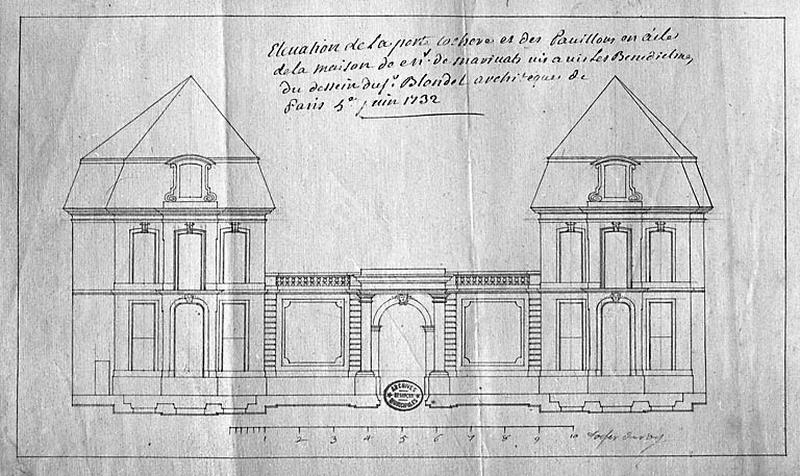 Eleuation de la porte cochere et des Pauillons en aile
de la maison de Mr. de marivats vis a vis Les Benedictins,
Du dessein du sr. Blondel architeque de
Paris 5e juin 1732
ARCHIVES
BESANÇON
MUNICIPALES
1 2 3 4 5 6 7 8 9 10